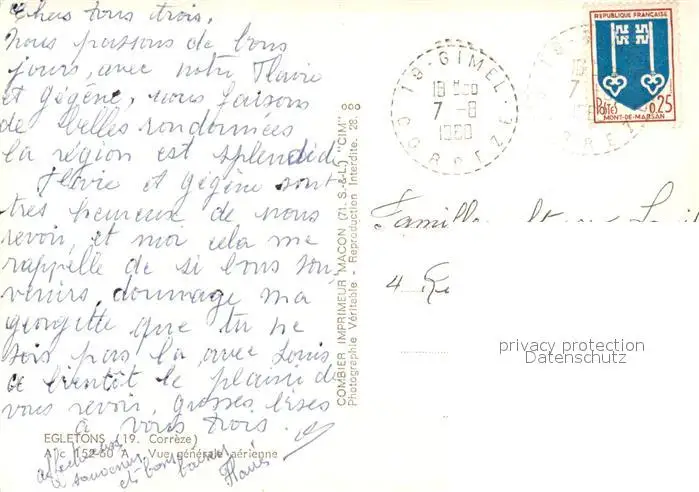 Chers tous trois.
Nous passons de bons
jours, avec notre Flavie
et Gégène, nous faisons
de belles randonnées
la région est splendide
Flavie et Gégène sont
très heureux de nous
revoir, et moi cela me
rappelle de si bons sou-
venirs, dommage ma
georgette que tu ne
sois pas là, avec Louis
a bientôt le plaisir de
vous revoir, grosses bises
à vous trois.
affectueux
souvenirs
et bons baisers
Flavie
EGLETONS (19. Corrèze)
A c 152-60 A Vue générale aérienne
COMBIER IMPRIMEUR MACON (71. S.-&-L.) "CIM"
Photographie Véritable - Reproduction Interdite. 28.
19-GIMEL
18 H 30
7 -8
1980
CORREZE
REPUBLIQUE FRANÇAISE
Postes 0,25
MONT-DE-MARSAN
Famille
4
privacy protection
Datenschutz